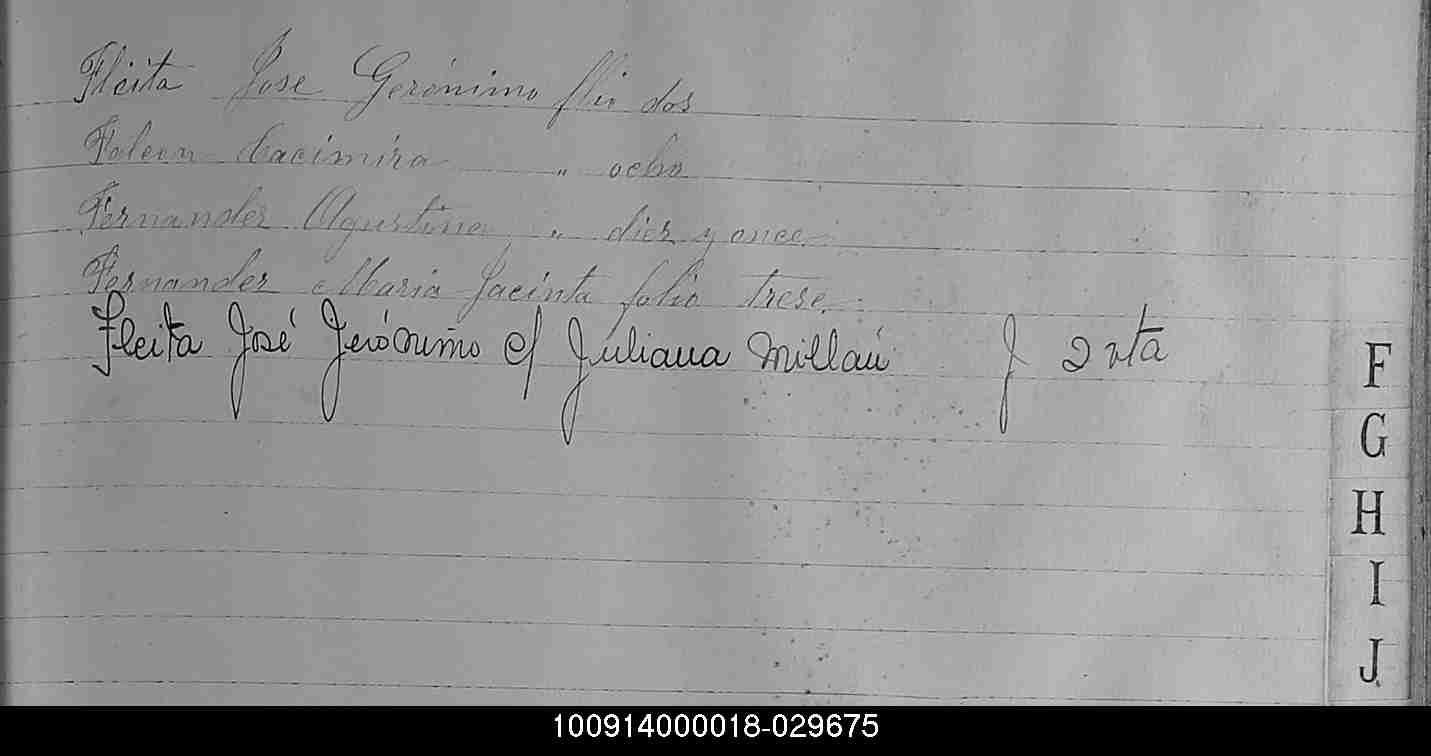 Fleita Jose Gerónimo flio dos
Falcon Cacimira " ocho
Fernandez Agustina " diez y once
Fernandez Maria Jacinta folio trese.
Fleita José Jerónimo c/ Juliana Millán f 2 vta
F
G
H
I
J
100914000018-029675